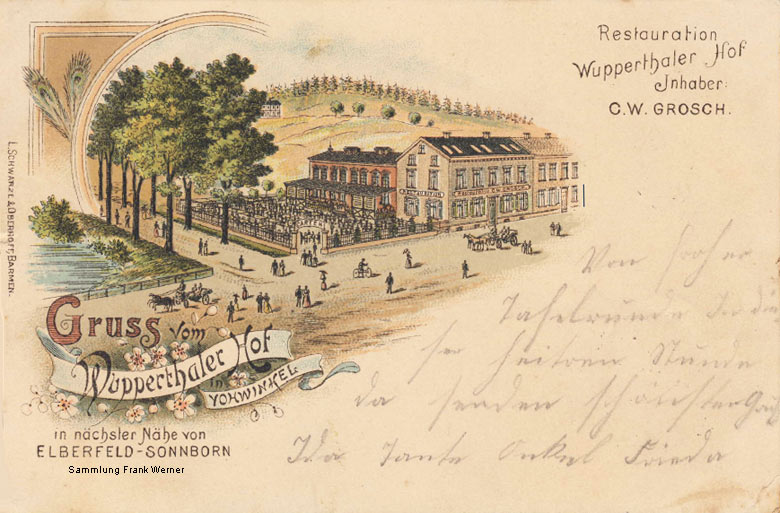 Restauration
Wupperthaler Hof
Inhaber:
C.W. GROSCH.
L. SCHWARZE & OBERHOFF, BARMEN.
RESTAURATION
Gruss vom
Wupperthaler Hof
in
VOHWINKEL
in nächster Nähe von
ELBERFELD-SONNBORN
Sammlung Frank Werner
Von froher
Tafelrunde In die
ser heitren Stunde
da senden schönsten
Ida Tante Onkel Frieda